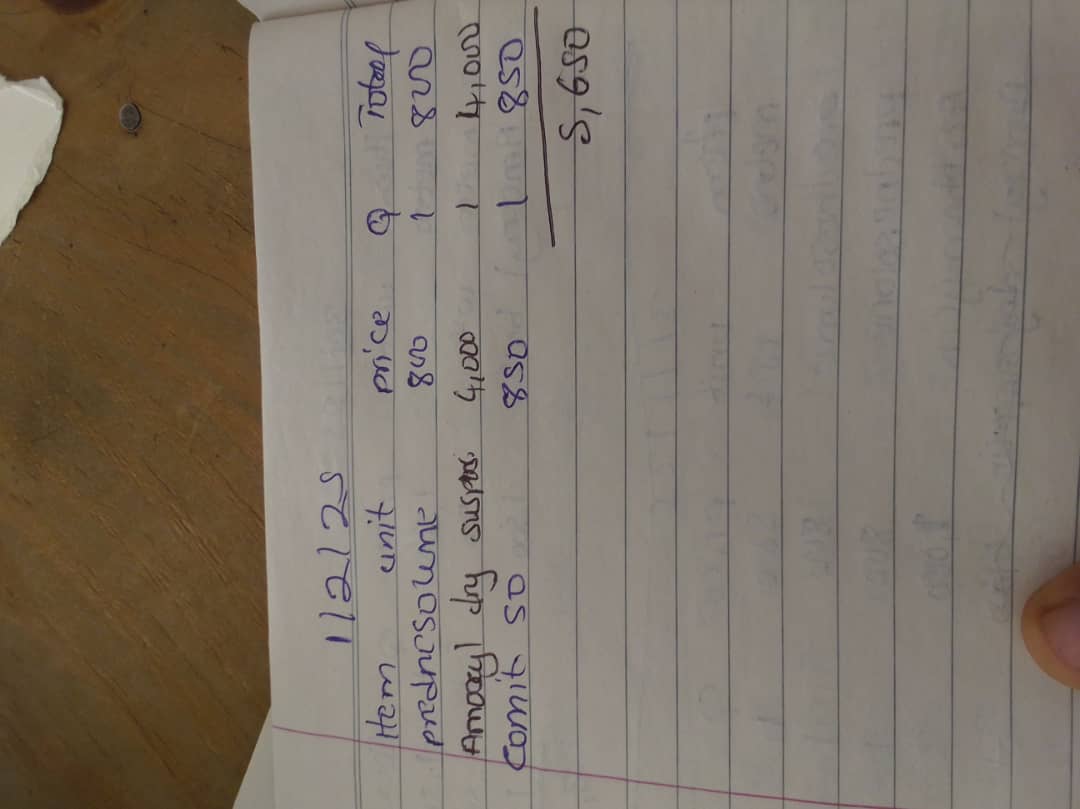 1/2/25
Item unit price Q Total
prednesolone 800 1 800
Amoxyl dry suspns. 4,000 1 4,000
Comit 50 850 1 850
5,650